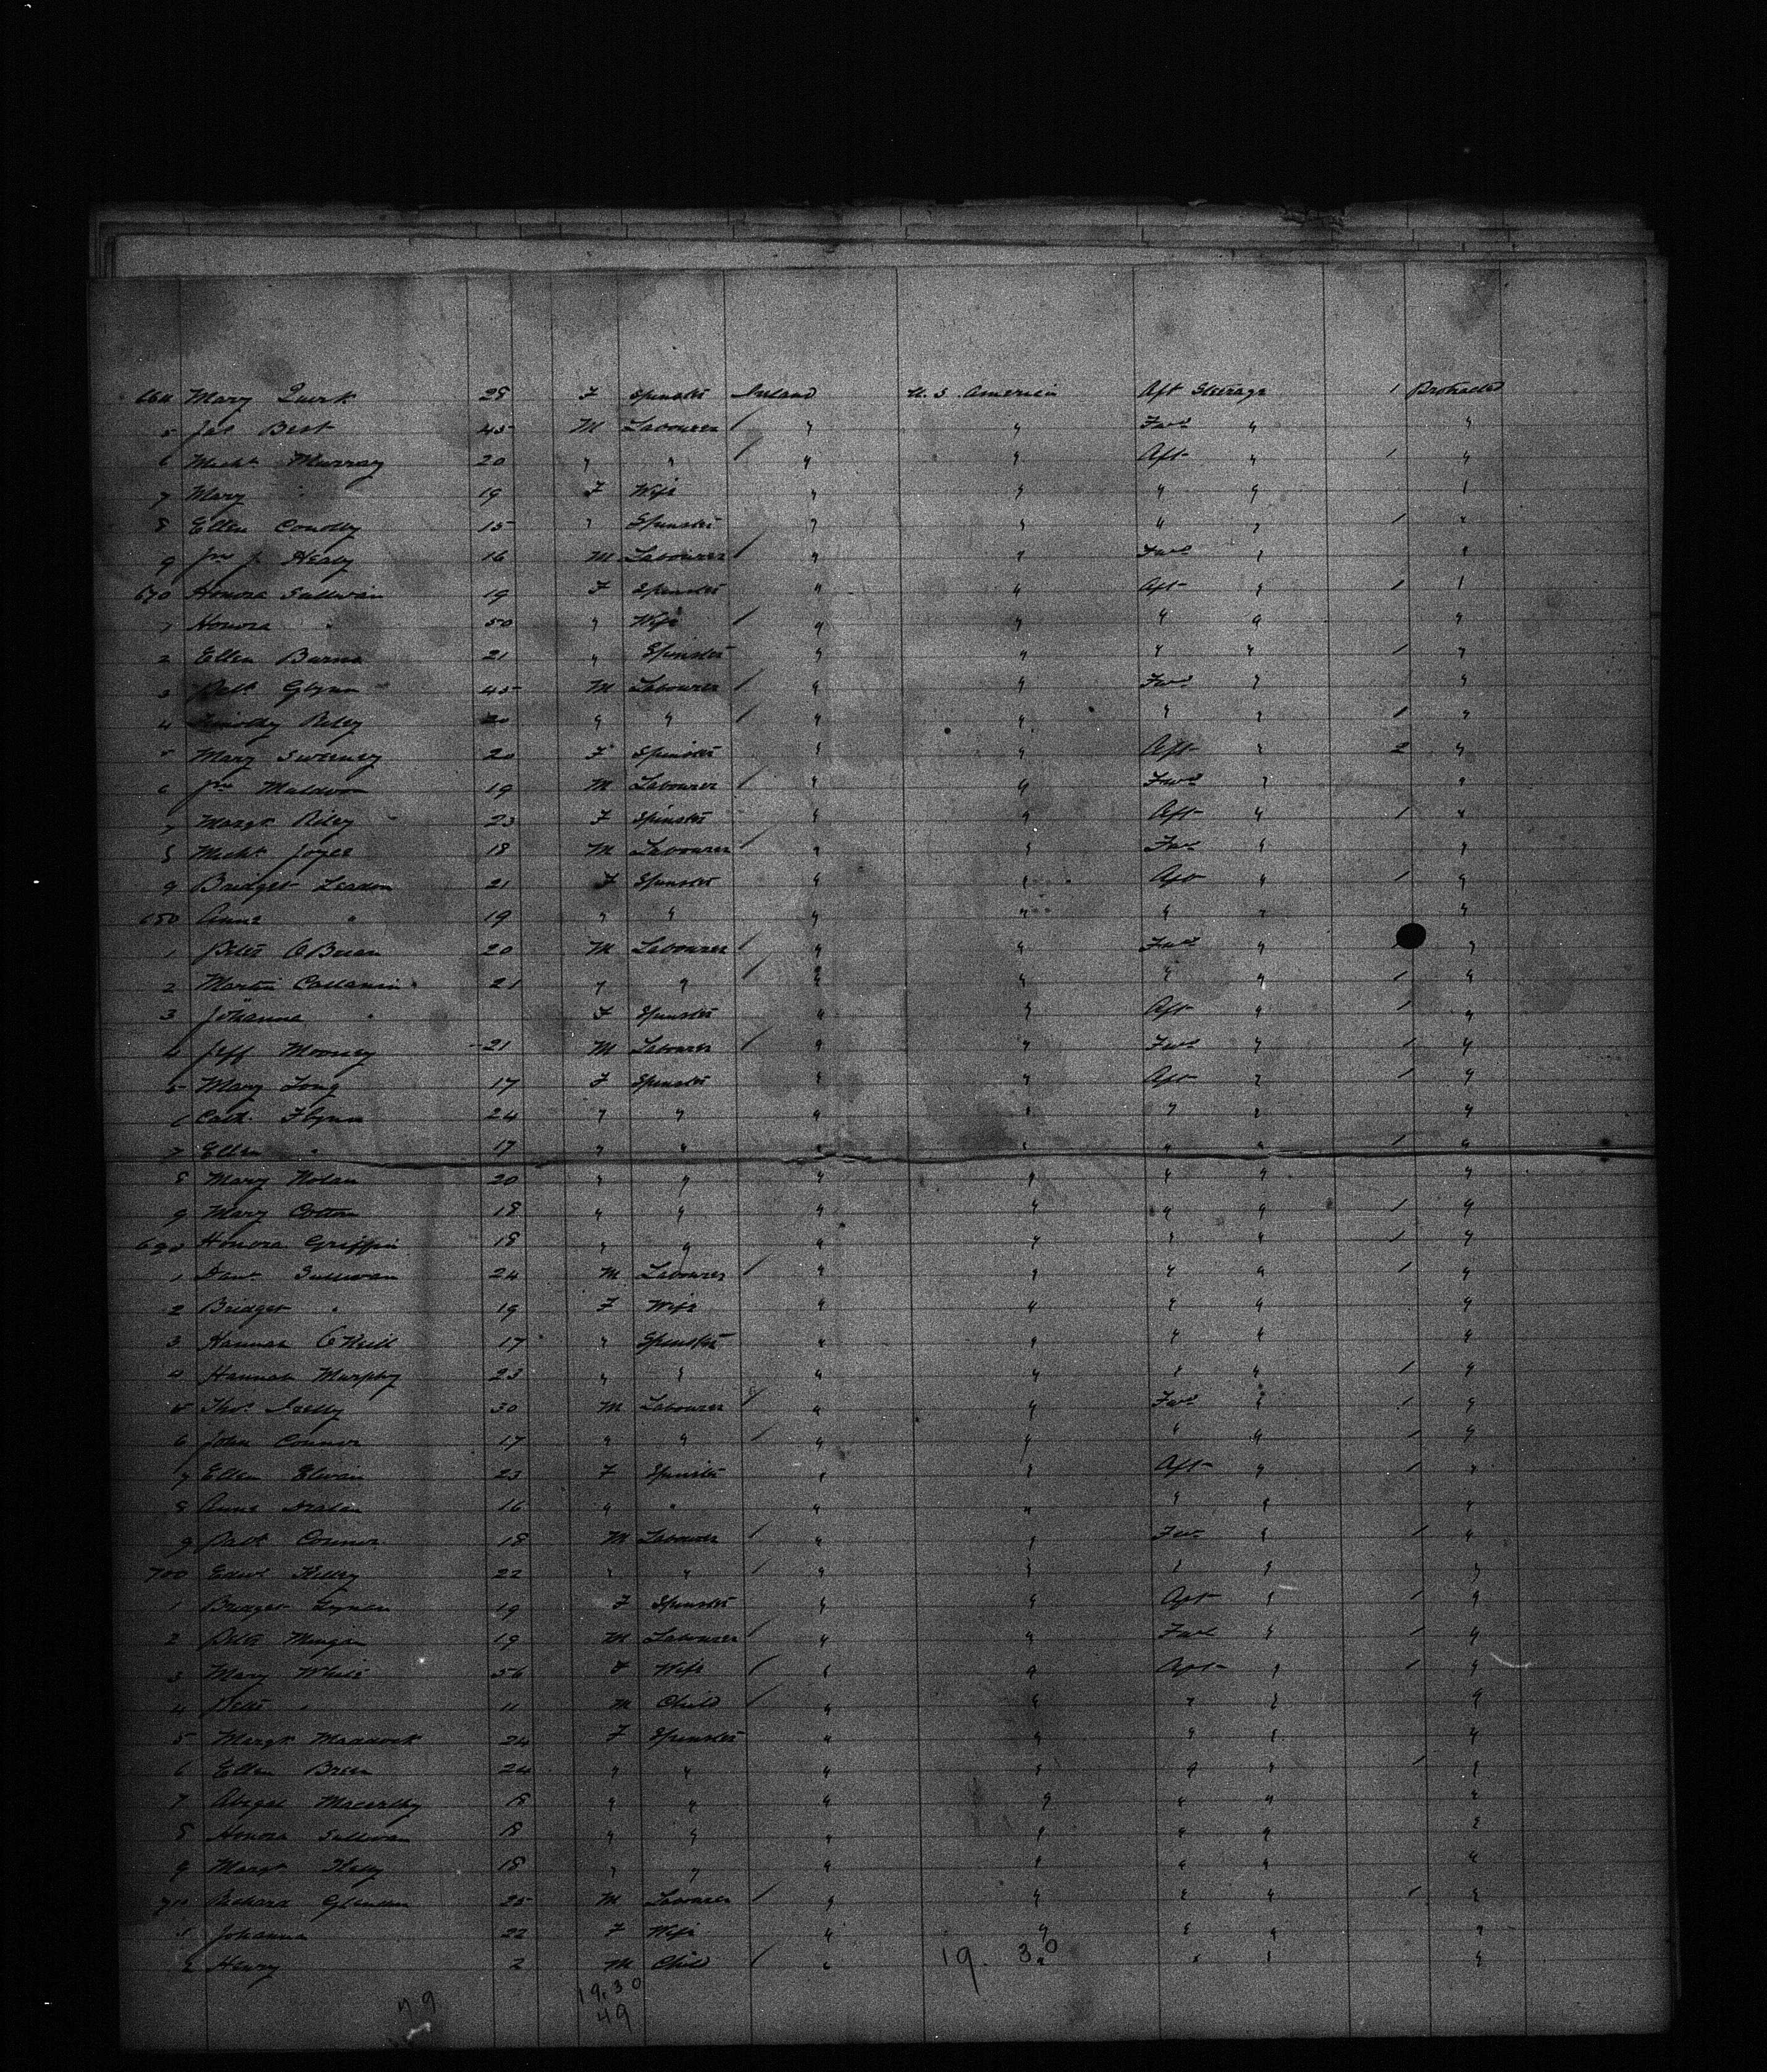 664 Mary Quirk 28 F Spinster Ireland U.S. America Aft Steerage 1 Protracted
5 Jas Best 45 M Labourer / " " Fwd " "
6 Michl Murray 20 " " / " " Aft " 1 "
7 Mary " 19 F Wife " " " " "
8 Ellen Conolly 15 " Spinster " " " " 1 "
9 Jno J. Healy 16 M Labourer / " " Fwd " "
670 Honora Sullivan 19 F Spinster " " Aft " 1 "
1 Honora " 50 " Wife / " " " " "
2 Ellen Burns 21 " Spinster " " " " 1 "
3 Patk Glynn 45 M Labourer / " " Fwd " "
4 Timothy Riley 20 " " / " " " " 1 "
5 Mary Sweeney 20 F Spinster " " Aft " 2 "
6 Jno Muldoon 19 M Labourer / " " Fwd " "
7 Margt Riley 23 F Spinster " " Aft " 1 "
8 Michl Joyce 18 M Labourer / " " Fwd " "
9 Bridget Leadon 21 F Spinster " " Aft " 1 "
680 Anne " 19 " " " " " " "
1 Peter O'Brien 20 M Labourer / " " Fwd " "
2 Martin Callanin 21 " " / " " " " 1 "
3 Johanna " F Spinster " " Aft " 1 "
4 Jeff Mooney 21 M Labourer / " " Fwd " 1 "
5 Mary Long 17 F Spinster " " Aft " 1 "
6 Cath Flynn 24 " " " " " " "
7 Ellen " 17 " " " " " " 1 "
8 Mary Nolan 20 " " " " " " "
9 Mary Cotton 18 " " " " " " 1 "
690 Honora Griffin 18 " " " " " " 1 "
1 Danl Sullivan 24 M Labourer / " " " " 1 "
2 Bridget " 19 F Wife " " " " "
3 Hannah O'Neill 17 " Spinster " " " " "
4 Hannah Murphy 23 " " " " " " 1 "
5 Thos 30 M Labourer / " " Fwd " 1 "
6 John Connor 17 " " / " " " " 1 "
7 Ellen 23 F Spinster " " Aft " 1 "
8 Anne 16 " " " " " " "
9 Patk Connor 18 M Labourer / " " Fwd " 1 "
700 Edwd Kelley 22 " " / " " " " "
1 Bridget 19 F Spinster " " Aft " 1 "
2 Peter 19 M Labourer / " " Fwd " 1 "
3 Mary White 56 F Wife / " " Aft " 1 "
4 Peter " 11 M Child / " " " " "
5 Margt Maddock 24 F Spinster " " " " "
6 Ellen Breen 24 " " " " " " 1 "
7 Abigal Macarthy 18 " " " " " " "
8 Honora Sullivan 18 " " " " " " "
9 Margt 18 " " " " " " "
710 Richard 25 M Labourer / " " " " 1 "
1 Johanna 22 F Wife " " " " "
2 Henry 2 M Child / " " " " "
19. 30
19.30
49